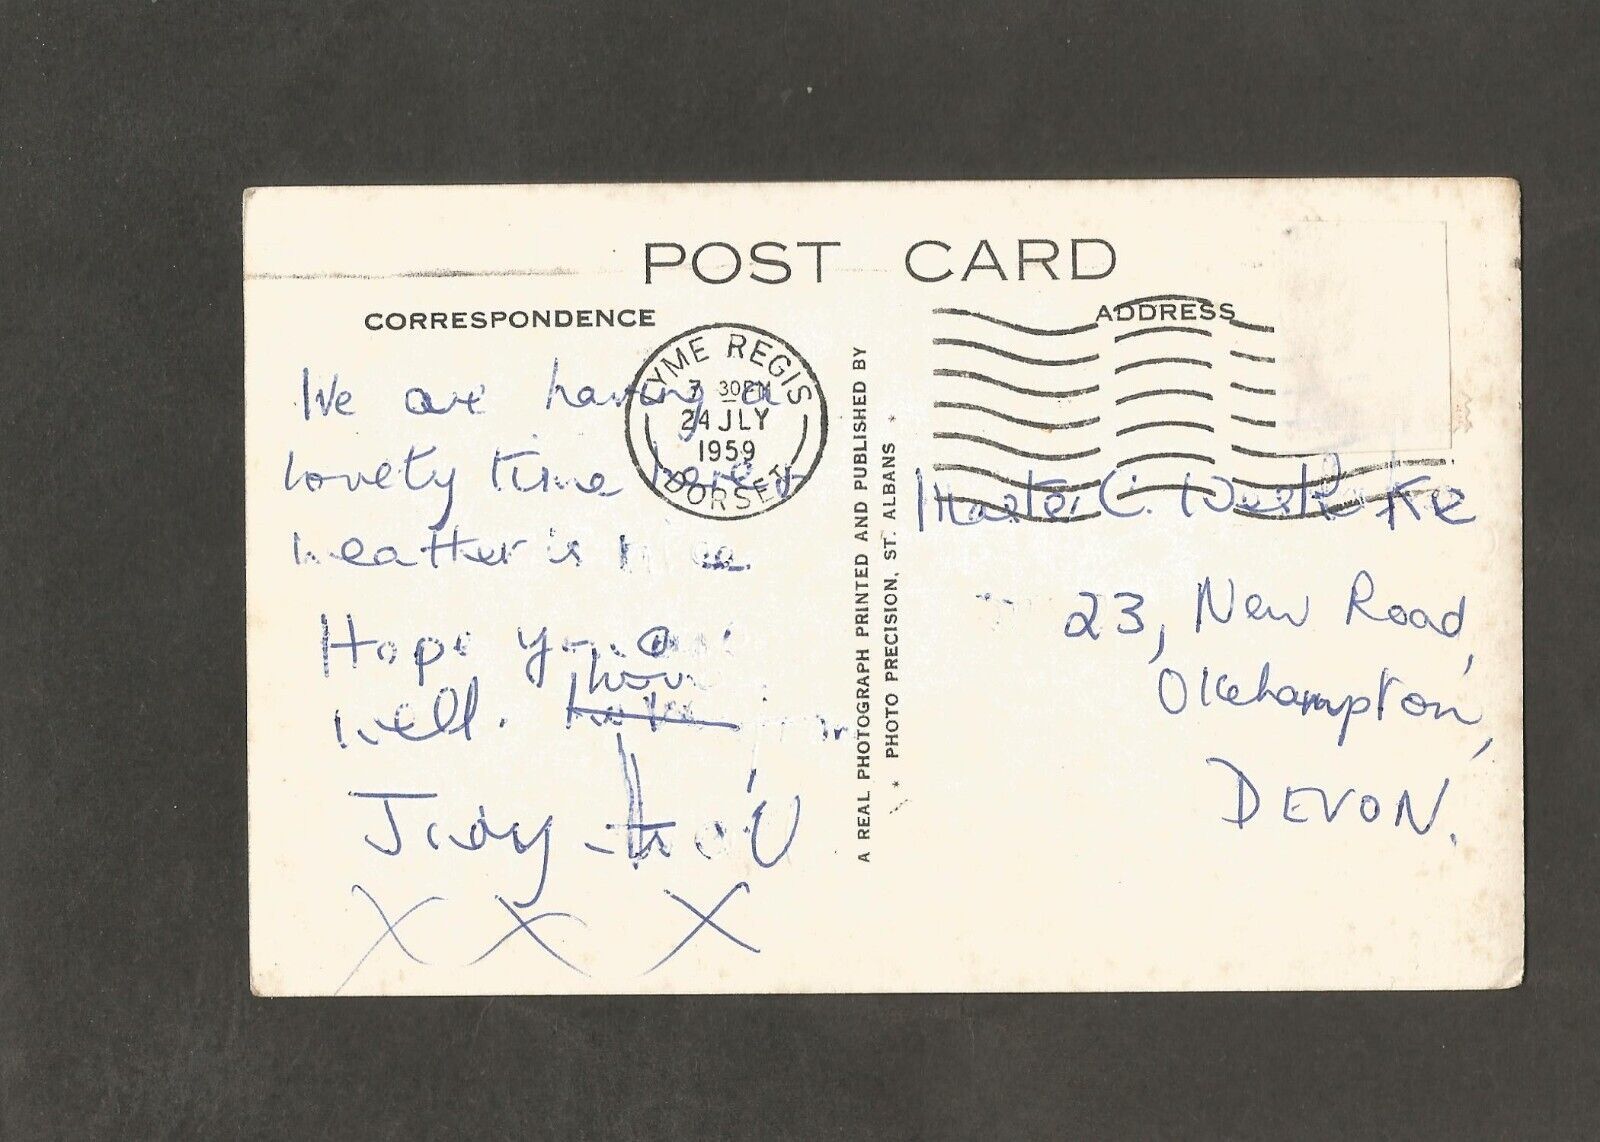 POST CARD
CORRESPONDENCE
ADDRESS
LYME REGIS
7 30PM
24 JLY
1959
DORSET
We are having a
lovely time here
weather is nice
Hope you are
well.
from
Judy
X X X
A REAL PHOTOGRAPH PRINTED AND PUBLISHED BY
* PHOTO PRECISION, ST. ALBANS *
Master C.
23, New Road,
Okehampton,
DEVON.